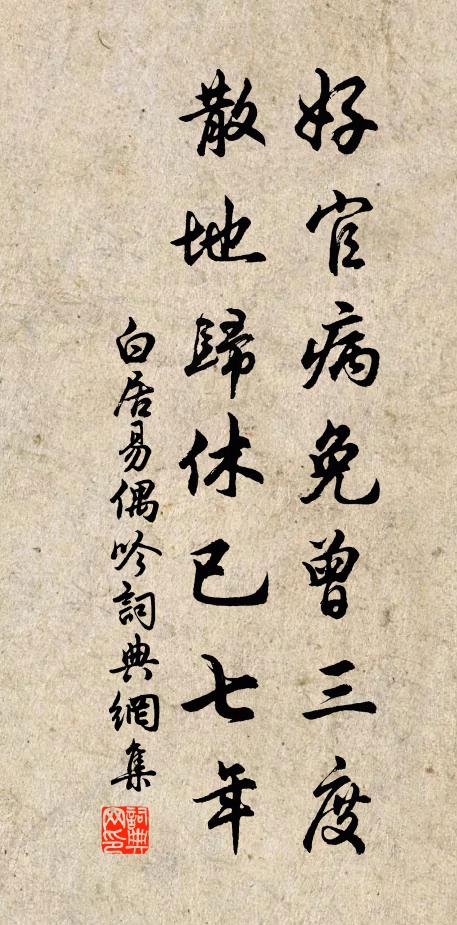 好官病免曾三度
散地歸休已七年
白居易偶吟詞典網集
詞典
网印